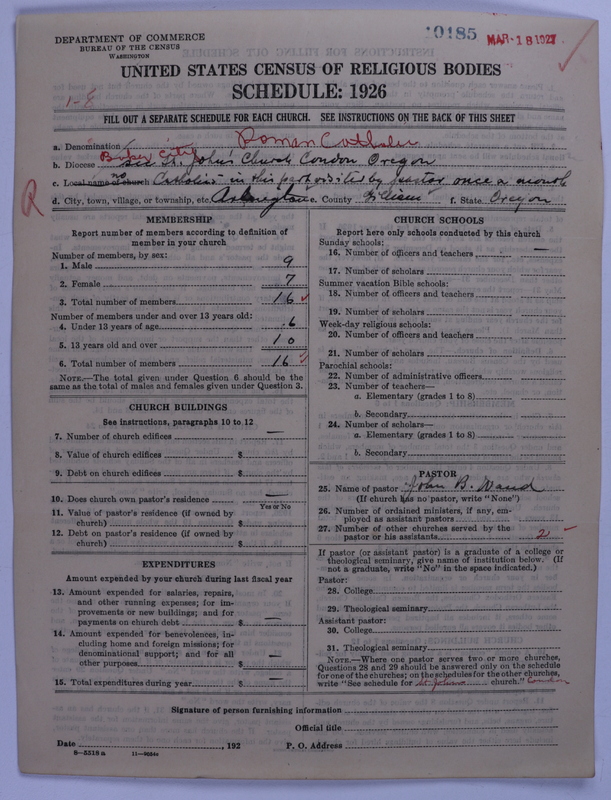 DEPARTMENT OF COMMERCE
BUREAU OF THE CENSUS
WASHINGTON
10185 MAR 18 1927
UNITED STATES CENSUS OF RELIGIOUS BODIES
SCHEDULE: 1926
1-8
FILL OUT A SEPARATE SCHEDULE FOR EACH CHURCH. SEE INSTRUCTIONS ON THE BACK OF THIS SHEET
a. Denomination Roman Catholic
Baker City
b. Diocese see St. John's Church Condon Oregon
c. Local name of church no Catholics in this part visited by pastor once a month
R
d. City, town, village, or township, etc. e. County Gilliam f. State Oregon
MEMBERSHIP
Report number of members according to definition of
member in your church
Number of members, by sex:
1. Male 9
2. Female 7
3. Total number of members 16
Number of members under and over 13 years old:
4. Under 13 years of age 6
5. 13 years old and over 10
6. Total number of members 16
NOTE.—The total given under Question 6 should be the
same as the total of males and females given under Question 3.
CHURCH BUILDINGS
See instructions, paragraphs 10 to 12
7. Number of church edifices —
8. Value of church edifices $
9. Debt on church edifices $
10. Does church own pastor's residence —
Yes or No
11. Value of pastor's residence (if owned by
church) $
12. Debt on pastor's residence (if owned by
church) $
EXPENDITURES
Amount expended by your church during last fiscal year
13. Amount expended for salaries, repairs,
and other running expenses; for im-
provements or new buildings; and for
payments on church debt $ —
14. Amount expended for benevolences, in-
cluding home and foreign missions; for
denominational support; and for all
other purposes $ —
15. Total expenditures during year $ —
CHURCH SCHOOLS
Report here only schools conducted by this church
Sunday schools:
16. Number of officers and teachers —
17. Number of scholars
Summer vacation Bible schools:
18. Number of officers and teachers
19. Number of scholars
Week-day religious schools:
20. Number of officers and teachers
21. Number of scholars
Parochial schools:
22. Number of administrative officers
23. Number of teachers—
a. Elementary (grades 1 to 8)
b. Secondary
24. Number of scholars—
a. Elementary (grades 1 to 8)
b. Secondary
PASTOR
25. Name of pastor John B. Wand
(If church has no pastor, write "None")
26. Number of ordained ministers, if any, em-
ployed as assistant pastors
27. Number of other churches served by the
pastor or his assistants 2
If pastor (or assistant pastor) is a graduate of a college or
theological seminary, give name of institution below. (If
not a graduate, write "No" in the space indicated.)
Pastor:
28. College
29. Theological seminary
Assistant pastor:
30. College
31. Theological seminary
NOTE.—Where one pastor serves two or more churches,
Questions 28 and 29 should be answered only on the schedule
for one of the churches; on the schedules for the other churches,
write "See schedule for St. Johns church." Condon
Signature of person furnishing information
Official title
Date , 192 P. O. Address
8—5318 a 11—9054a